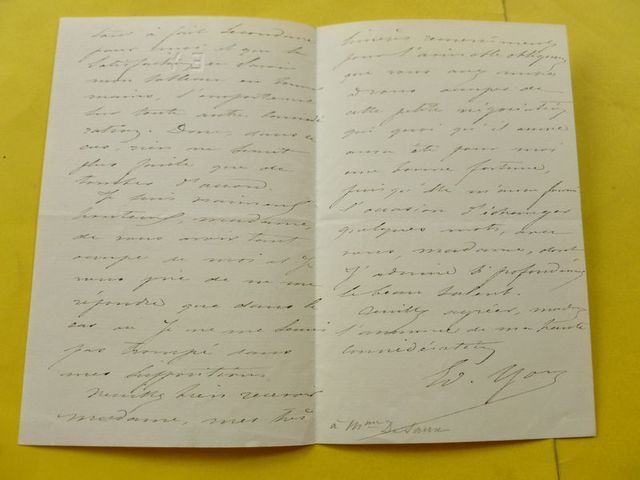 tout à fait secondaire
pour moi et que la
satisfaction d'avoir
mon tableau en bonnes
mains, l'emportera
sur toute autre considé
ration. Donc, dans ce
cas, rien ne serait
plus facile que de
tomber d'accord.
Je suis vraiment
honteux, madame,
de vous avoir tant
occupé de moi et je
vous prie de ne me
répondre que dans le
cas où je ne me serais
pas trompé dans
mes suppositions
Veuillez bien recevoir
madame, mes très
sincères remerciements
pour l'aimable obligeance
que vous avez mise
à vous occuper de
cette petite négociation
qui quoi qu'il arrive
aura été pour moi
une bonne fortune,
puisqu'elle m'aura fourni
l'occasion d'échanger
quelques mots, avec
vous, madame, dont
j'admire si profondément
le beau talent.
Veuillez agréer, madame
l'assurance de ma haute
considération
Ed. Yon
à Mme De Saux